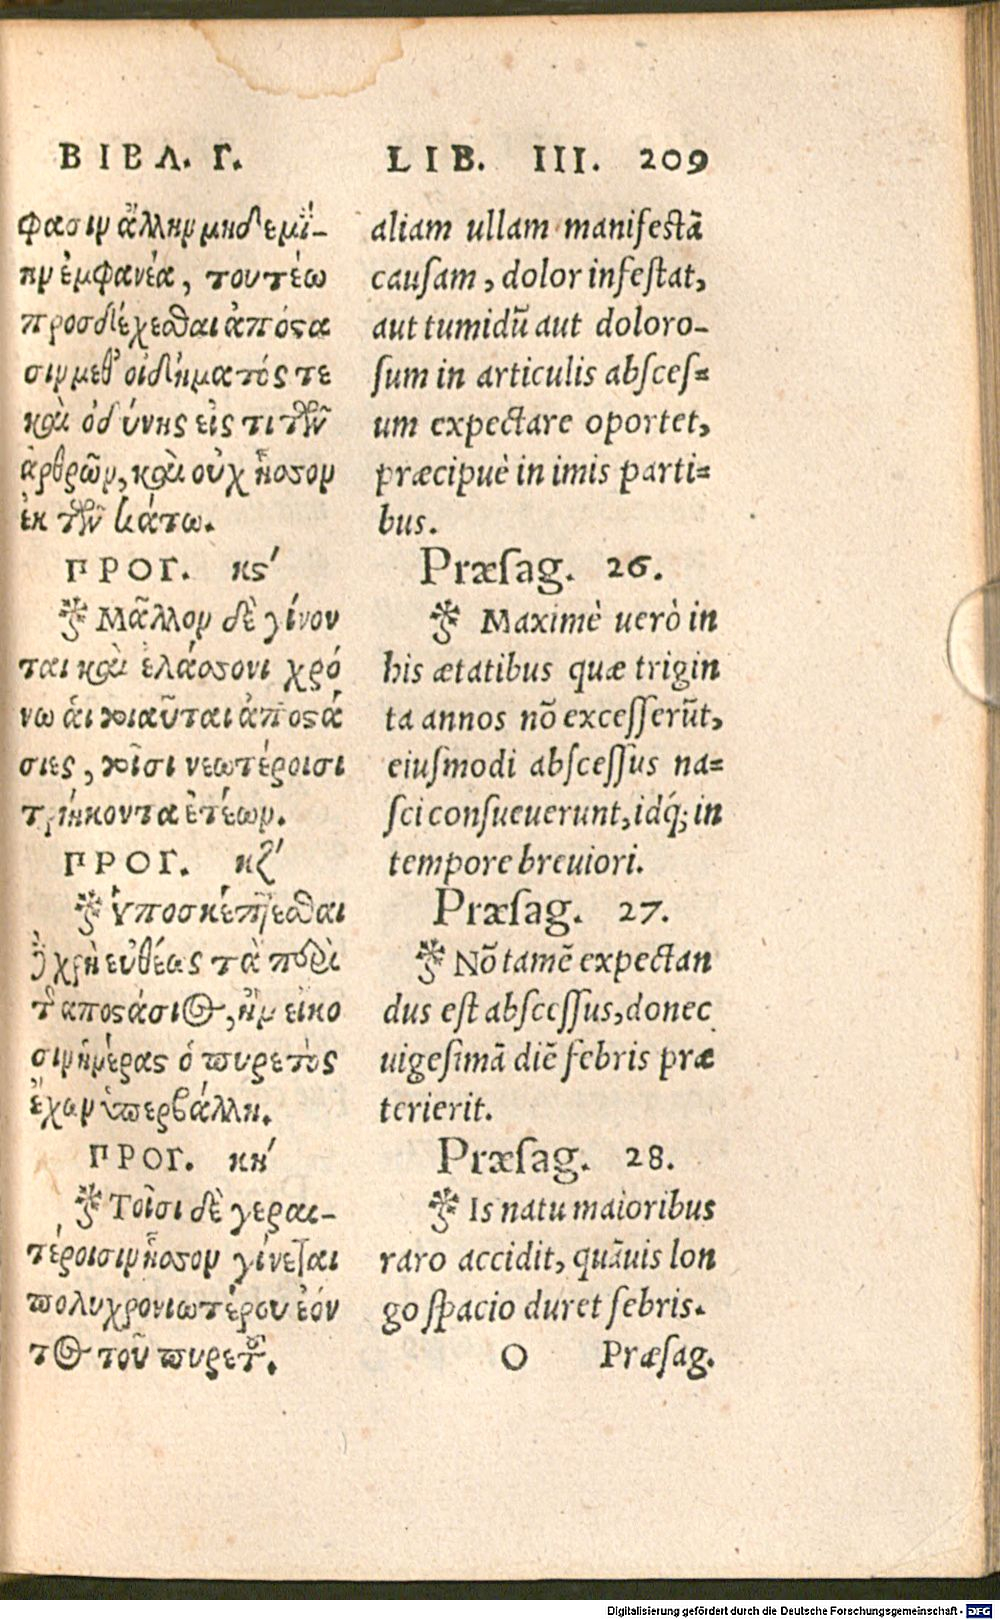 ΒΙΒΛ. Γ.
φασιν ἄλλην μηδεμί-
ην ἐμφανέα, τουτέω
προσδέχεσθαι ἀπόστα
σιν μεθ' οἰδήματός τε
καὶ ὀδύνης εἴς τι τῶν
ἀρθρῶν, καὶ οὐχ ἧσσον
ἐκ τῶν κάτω.
ΠΡΟΓ. κς'
Μᾶλλον δὲ γίνον
ται καὶ ἐλάσσονι χρό
νω ἁι τοιαῦται ἀποστά
σιες, τοῖσι νεωτέροισι
τριήκοντα ἐτέων.
ΠΡΟΓ. κζ'
Ὑποσκέπτεσθαι
χρὴ εὐθέως τὰ περὶ
τ αποστάσιος, ἢν εἴκο
σιν ἡμέρας ὁ πυρετὸς
ἔχων ὑπερβάλλη.
ΠΡΟΓ. κη'
Τοῖσι δὲ γεραι-
τέροισιν ἧσσον γίνεται
πολυχρονιωτέρου ἐόν
τος τοῦ πυρετοῦ.
LIB. III. 209
aliam ullam manifestā
causam, dolor infestat,
aut tumidū aut doloro-
sum in articulis absces=
um expectare oportet,
præcipuè in imis parti=
bus.
Præsag. 26.
Maximè uerò in
his ætatibus quæ trigin
ta annos nō excesserūt,
eiusmodi abscessus na=
sci consueuerunt, idq́; in
tempore breuiori.
Præsag. 27.
Nō tamē expectan
dus est abscessus, donec
uigesimā diē febris præ
terierit.
Præsag. 28.
Is natu maioribus
raro accidit, quāuis lon
go spacio duret febris.
O Præsag.
Digitalisierung gefördert durch die Deutsche Forschungsgemeinschaft - DFG